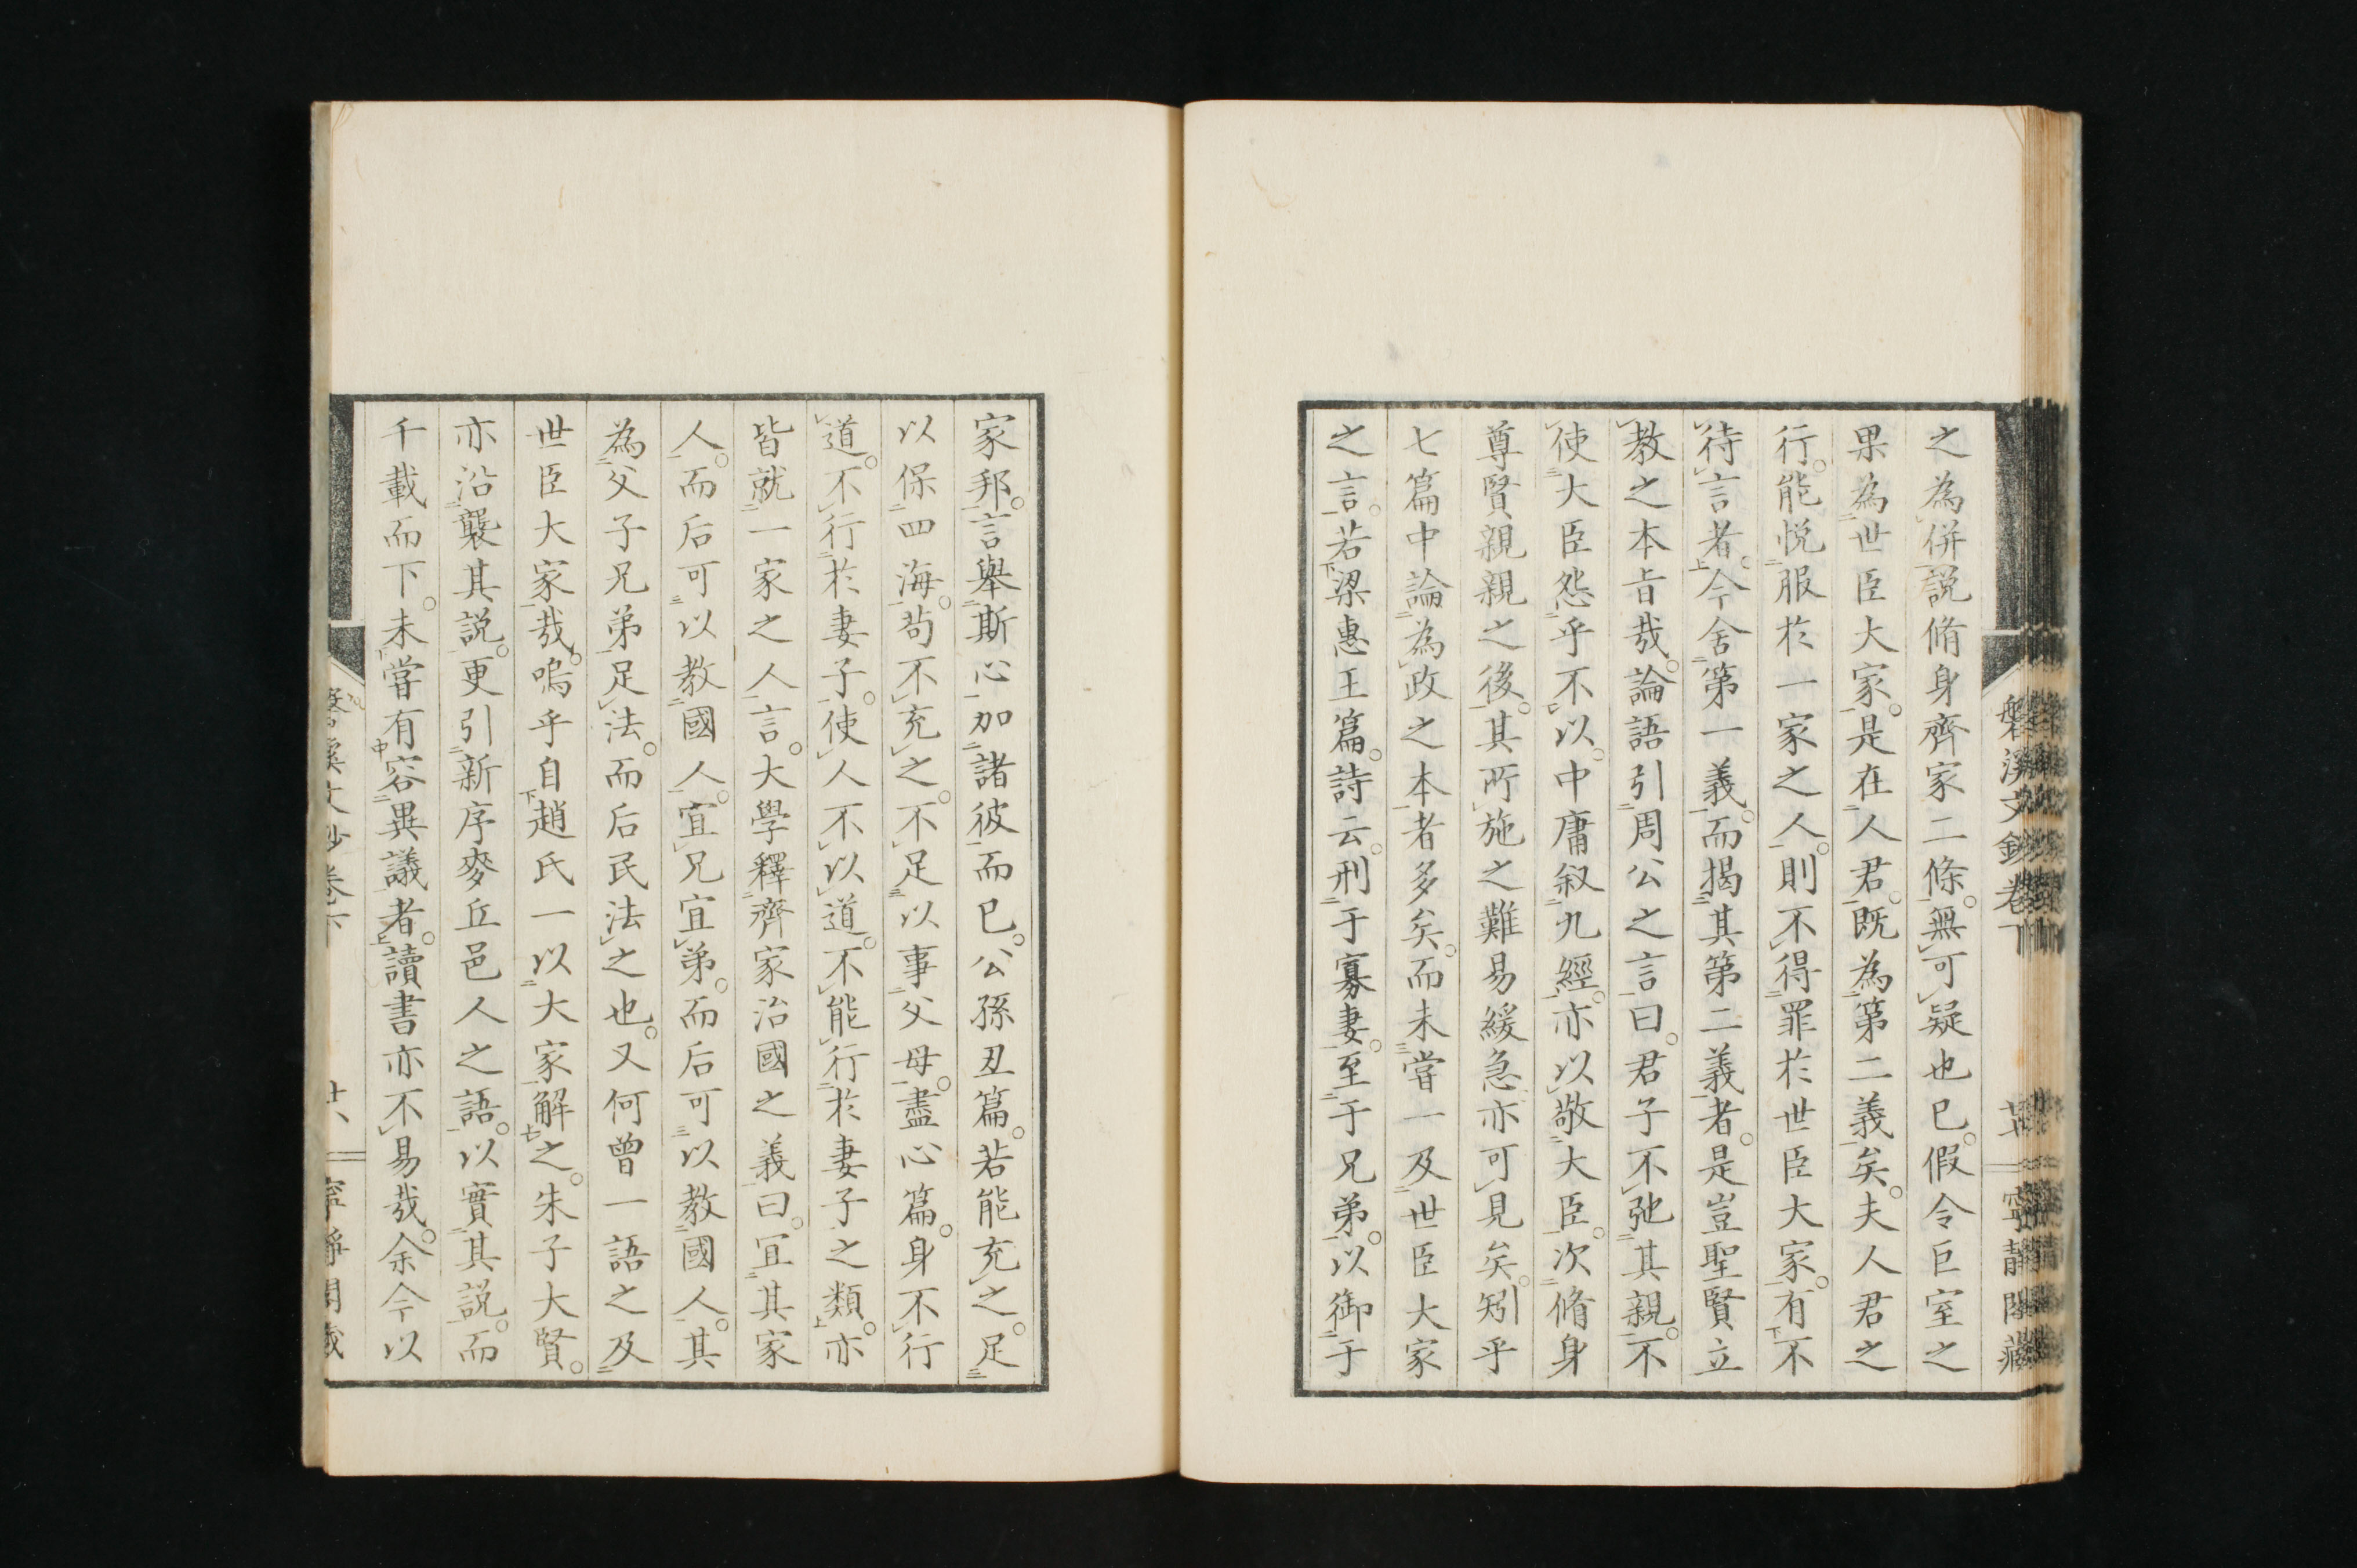 之為併説脩身齊家二條。無可疑也已。假令巨室之
果為世臣大家。是在人君。既為第二義矣。夫人君之
行。能悦服於一家之人。則不得罪於世臣大家。有不
待言者。今舍第一義。而揭其第二義者。是豈聖賢立
教之本旨哉。論語引周公之言曰。君子不弛其親。不
使大臣怨乎不以。中庸叙九經。亦以敬大臣。次脩身
尊賢親親之後。其所施之難易緩急亦可見矣。矧乎
七篇中論為政之本者多矣。而未嘗一及世臣大家
之言。若梁惠王篇。詩云。刑于寡妻。至于兄弟。以御于
家邦。言舉斯心加諸彼而已。公孫丑篇。若能充之。足
以保四海。苟不充之。不足以事父母。盡心篇。身不行
道。不行於妻子。使人不以道。不能行於妻子之類。亦
皆就一家之人言。大學釋齊家治國之義曰。宜其家
人。而后可以教國人。宜兄宜弟。而后可以教國人。其
為父子兄弟足法。而后民法之也。又何曾一語之及
世臣大家哉。嗚乎自趙氏一以大家解之。朱子大賢。
亦沿襲其説。更引新序麥丘邑人之語。以實其説。而
千載而下。未嘗有容異議者。讀書亦不易哉。余今以